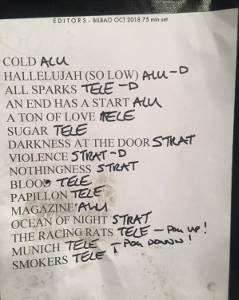 EDITORS - BILBAO OCT 2018 75 min set
COLD ALU
HALLELUJAH (SO LOW) ALU-D
ALL SPARKS TELE-D
AN END HAS A START ALU
A TON OF LOVE TELE
SUGAR TELE
DARKNESS AT THE DOOR STRAT
VIOLENCE STRAT-D
NOTHINGNESS STRAT
BLOOD TELE
PAPILLON TELE
MAGAZINE ALU
OCEAN OF NIGHT STRAT
THE RACING RATS TELE - PCU up!
MUNICH TELE - PCU DOWN!
SMOKERS TELE